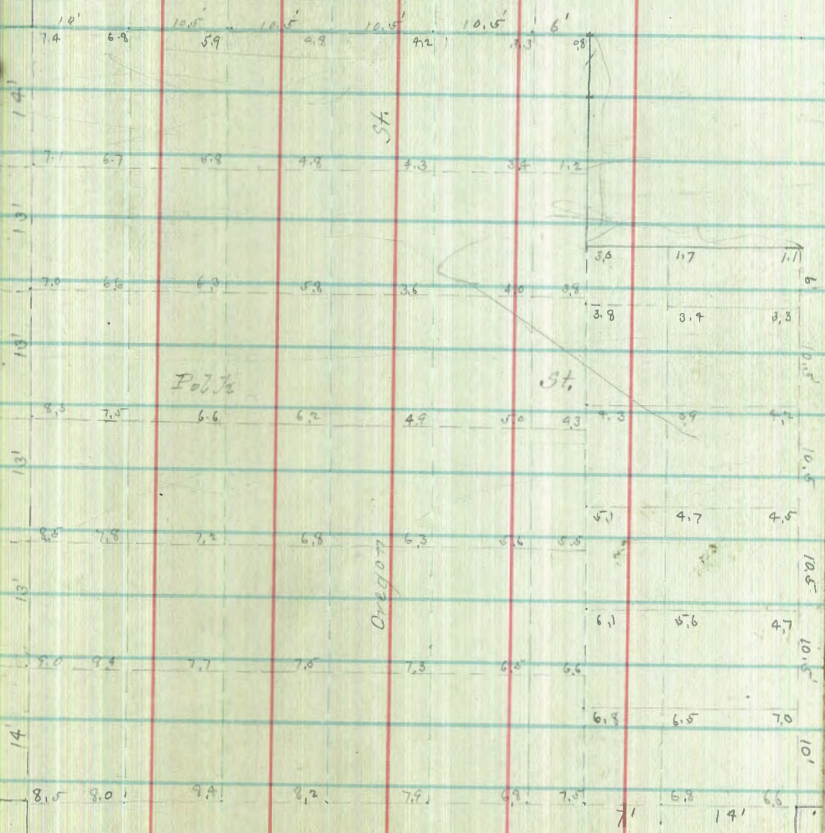 10' 10.5' 10.5' 10.5' 10.5' 6'
7.4 6.8 5.9 4.8 4.2 3.3 .8
14'
St.
7.1 6.7 5.8 4.8 4.3 3.4 1.2
13'
3.0 1.7 1.1
7.0 6.6 6.3 5.8 3.6 4.0 3.8
6'
3.8 3.4 3.3
13' 10.5'
Polk St.
8.3 7.5 6.6 6.2 4.9 5.0 4.3 4.3 3.9 4.2
13' 10.5
5.1 4.7 4.5
8.5 7.8 7.2 6.8 6.3 5.6 5.5
13' Oregon 10.5'
6.1 5.6 4.7
9.0 8.4 7.7 7.5 7.3 6.5 6.6
10.5'
6.8 6.5 7.0
14' 10'
8.5 8.0 8.4 8.2 7.9 6.8 7.5 6.8 6.6
7' 14'